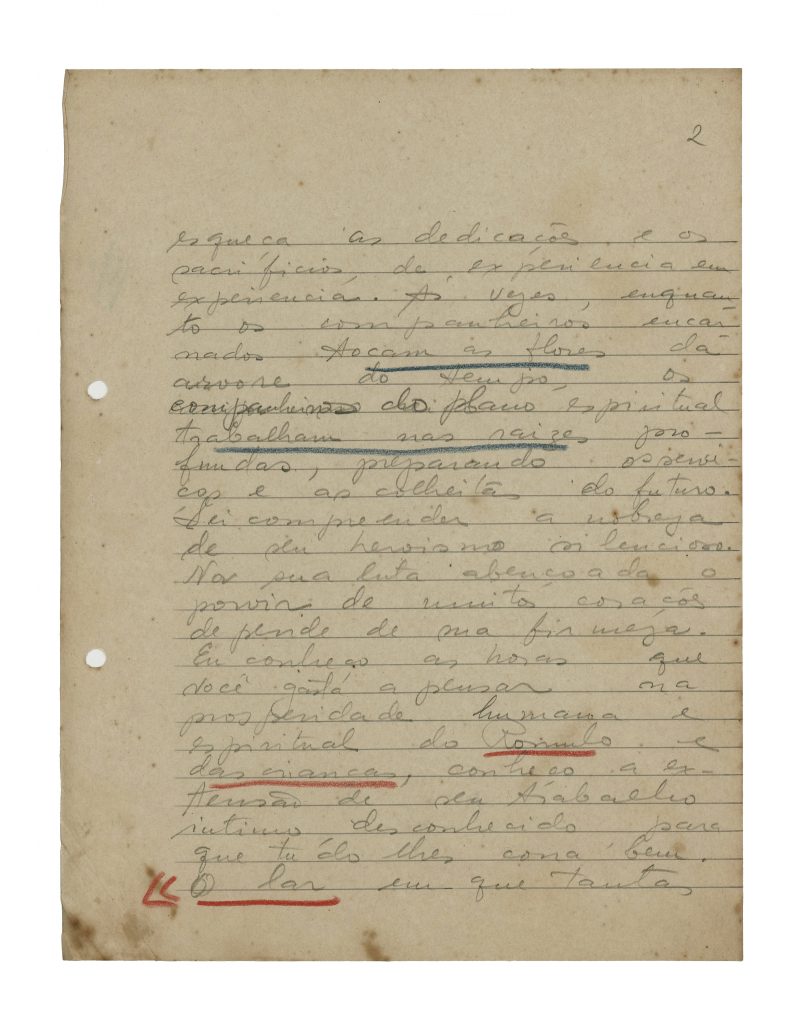 2
esqueça as dedicações e os
sacrifícios, de experiencia em
experiencia. As vezes, enquan-
to os companheiros encar-
nados tocam as flores da
arvore do tempo, os
companheiros do plano espiritual
trabalham nas raizes pro-
fundas, preparando os servi-
ços e as colheitas do futuro.
Sei compreender a nobreza
de seu heroismo silencioso.
Na sua luta abençoada o
porvir de muitos corações
depende de sua firmeza.
Eu conheço as horas que
você gasta a pensar na
prosperidade humana e
espiritual do Romulo e
das crianças, conheço a ex-
tensão de seu trabalho
intimo desconhecido para
que tudo lhes corra bem.
O lar em que tantas